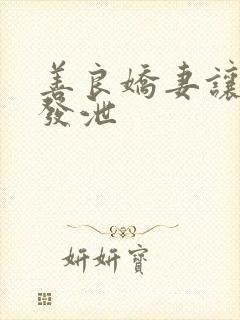 善良嬌妻讓
發泄
妍妍寶